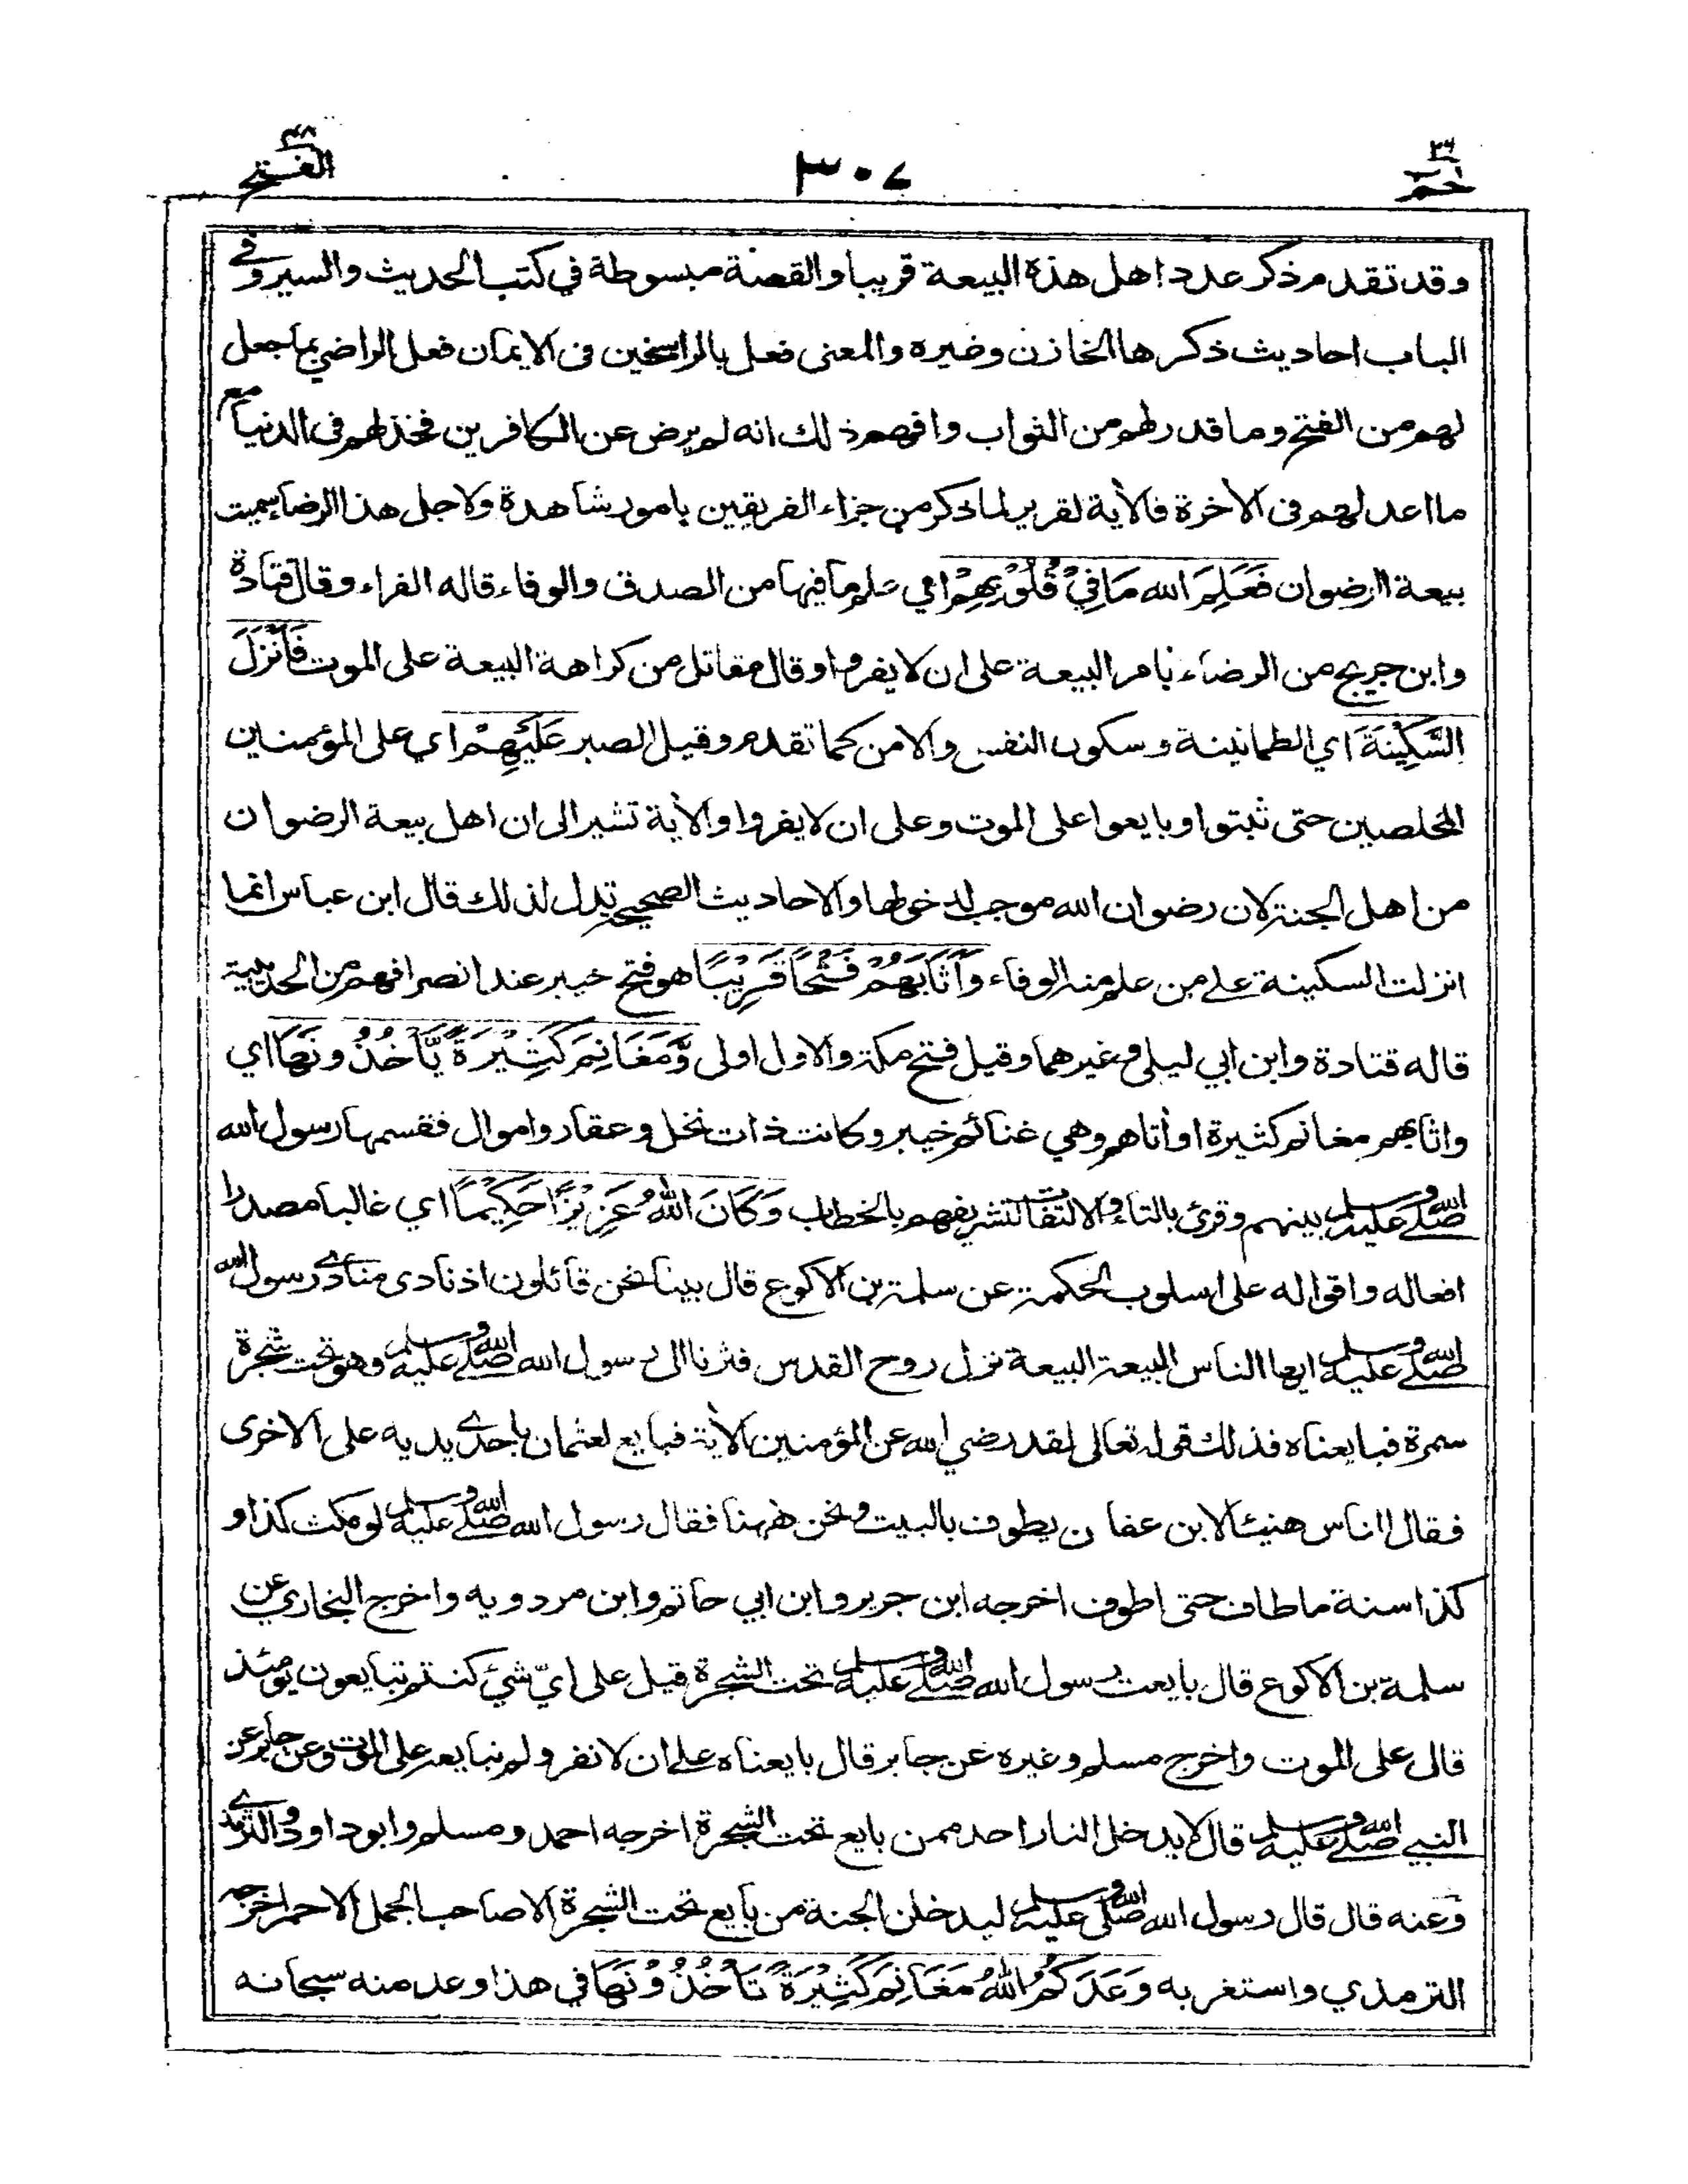 ٢٦ حم
٣٠٧
٤٨ الفتح
وقد تقدم ذكر عدد اهل هذه البيعة قريبا والقصة مبسوطة في كتب الحديث والسير وفي
الباب احاديث ذكرها الخازن وغيره والمعنى فعل بالراسخين في الايمان فعل الراضي بما جعل
لهم من الفتح وما قدر لهم من الثواب وافهم ذلك انه لم يرض عن الكافرين فخذلهم في الدنيا مع
ما اعد لهم في الأخرة فالأية لقرير لما ذكر من جزاء الفريقين بامور شاهدة ولاجل هذا الرضا سميت
بيعة الرضوان فَعَلِمَ الله مَا فِيْ قُلُوْبِهِمْ اي علم ما فيها من الصدق والوفاء قاله الفراء وقال قتادة
وابن جريج من الرضاء بامر البيعة على ان لا يفروا وقال مقاتل من كراهة البيعة على الموت فَأَنْزَلَ
السَّكِيْنَةَ اي الطمانينة وسكون النفس والامن كما تقدم وقيل الصبر عَلَيْهِمْ اي على المؤمنين
المخلصين حتى ثبتوا وبايعوا على الموت وعلى ان لا يفروا والأية تشير الى ان اهل بيعة الرضوان
من اهل الجنة لان رضوان الله موجب لدخولها والاحاديث الصحيحة تدل لذلك قال ابن عباس انما
انزلت السكينة على من علم منه الوفاء وَأَثَابَهُمْ فَتْحًا قَرِيْبًا هو فتح خيبر عند انصرافهم من الحديبية
قاله قتادة وابن ابي ليلى وغيرهما وقيل فتح مكة والاول اولى وَّمَغَانِمَ كَثِيْرَةً يَّأْخُذُوْنَهَا اي
واثابهم مغانم كثيرة او أتاهم وهي غنائم خيبر وكانت ذات نخل وعقار واموال فقسمها رسول الله
صلى الله عليه وسلم بينهم وقرئ بالتاء والالتفات لتشريفهم بالخطاب وَكَانَ اللهُ عَزِيْزًا حَكِيْمًا اي غالبا مصدرا
افعاله واقواله على اسلوب الحكمة عن سلمة بن الاكوع قال بينا نحن قائلون اذ نادى منادي رسول الله
صلى الله عليه وسلم ايها الناس البيعة البيعة نزل روح القدس فثرنا الى رسول الله صلى الله عليه وسلم وهو تحت شجرة
سمرة فبايعناه فذلك قوله تعالى لقد رضي الله عن المؤمنين الأية فبايع لعثمان باحدى يديه على الاخرى
فقال الناس هنيئا لابن عفان يطوف بالبيت ونحن ههنا فقال رسول الله صلى الله عليه وسلم لو مكث كذا و
كذا سنة ما طاف حتى اطوف اخرجه ابن جرير وابن ابي حاتم وابن مردويه واخرج البخاري عن
سلمة بن الاكوع قال بايعت رسول الله صلى الله عليه وسلم تحت الشجرة قيل على ايّ شيء كنتم تبايعون يومئذ
قال على الموت واخرج مسلم وغيره عن جابر قال بايعناه على ان لا نفر ولم نبايعه على الموت وعن جابر عن
النبي صلى الله عليه وسلم قال لا يدخل النار احد ممن بايع تحت الشجرة اخرجه احمد ومسلم وابو داود والترمذي
وعنه قال قال رسول الله صلى الله عليه وسلم ليدخلن الجنة من بايع تحت الشجرة الا صاحب الجمل الاحمر اخرجه
الترمذي واستغربه وَعَدَكُمُ اللهُ مَغَانِمَ كَثِيْرَةً تَأْخُذُوْنَهَا في هذا وعد منه سبحانه